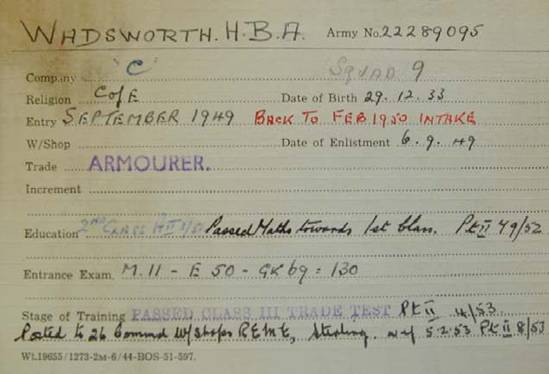 WADSWORTH. H.B.A. Army No. 22289095
Company "C" SQUAD 9
Religion C of E Date of Birth 29.12.33
Entry SEPTEMBER 1949 BACK TO FEB 1950 INTAKE
W/Shop Date of Enlistment 6.9.49
Trade ARMOURER.
Increment
Education 2ND CLASS Passed Maths towards 1st Class. Pt II 49/52
Entrance Exam. M.11 - E 50 - GK 69 = 130
Stage of Training PASSED CLASS III TRADE TEST Pt II 4/53
Posted to 26 Command W/Shops REME, Stirling. wef 5.2.53 Pt II 8/53
Wt.19655/1273-2M-6/44-BOS-51-597.